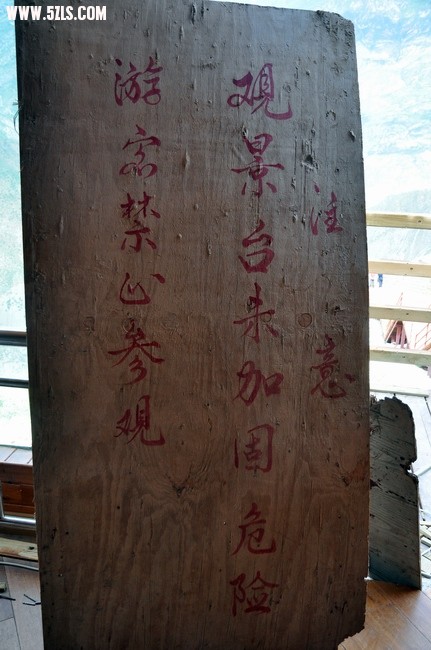 WWW.5ZLS.COM
注意
观景台未加固危险
游客禁止参观